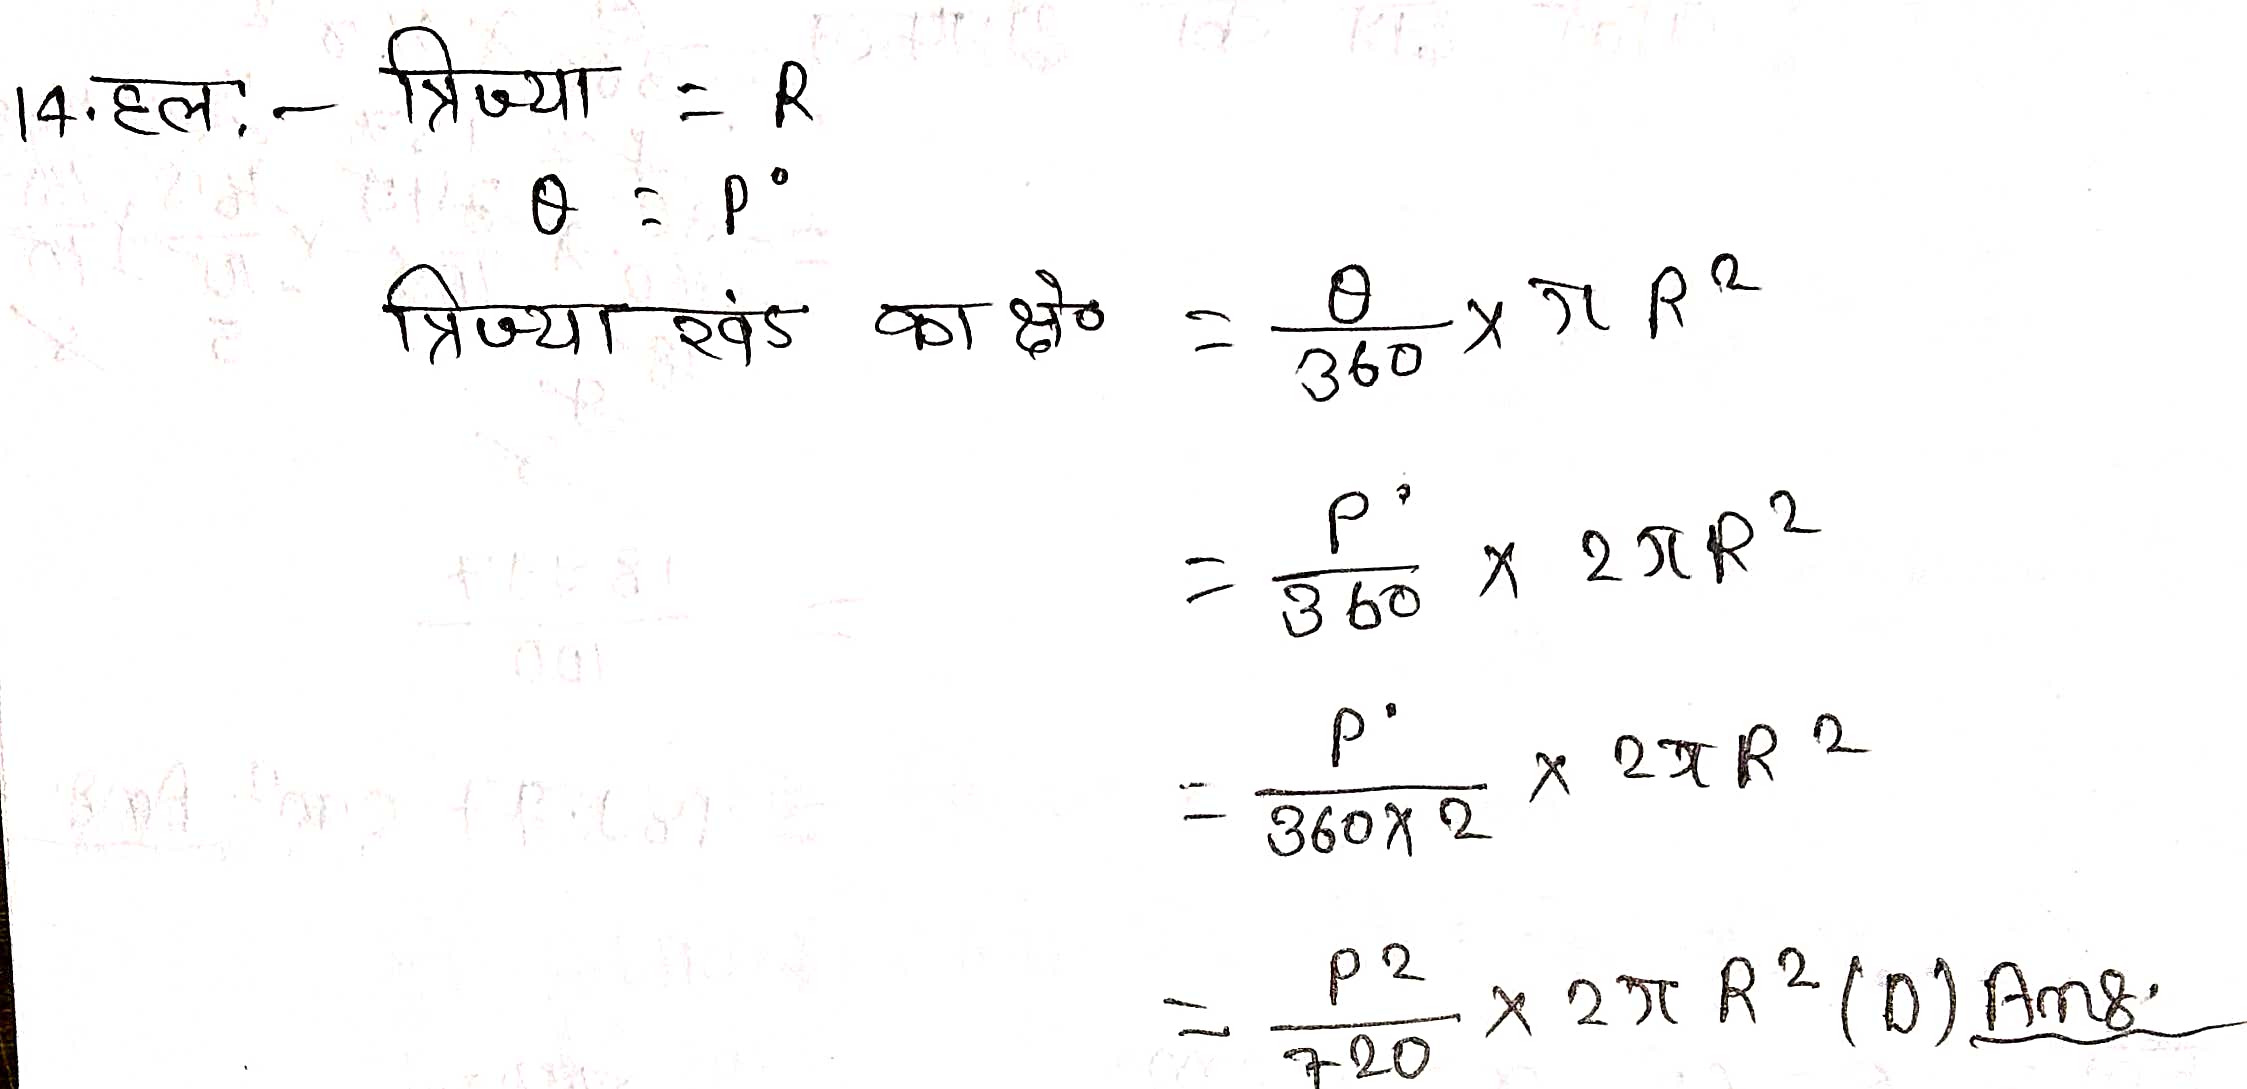 14. हल:- त्रिज्या = R
θ = P°
त्रिज्याखंड का क्षे० = θ/360 × π R²
= P°/360 × 2πR²
= P°/360×2 × 2πR²
= P2/720 × 2πR² (D) Ans.